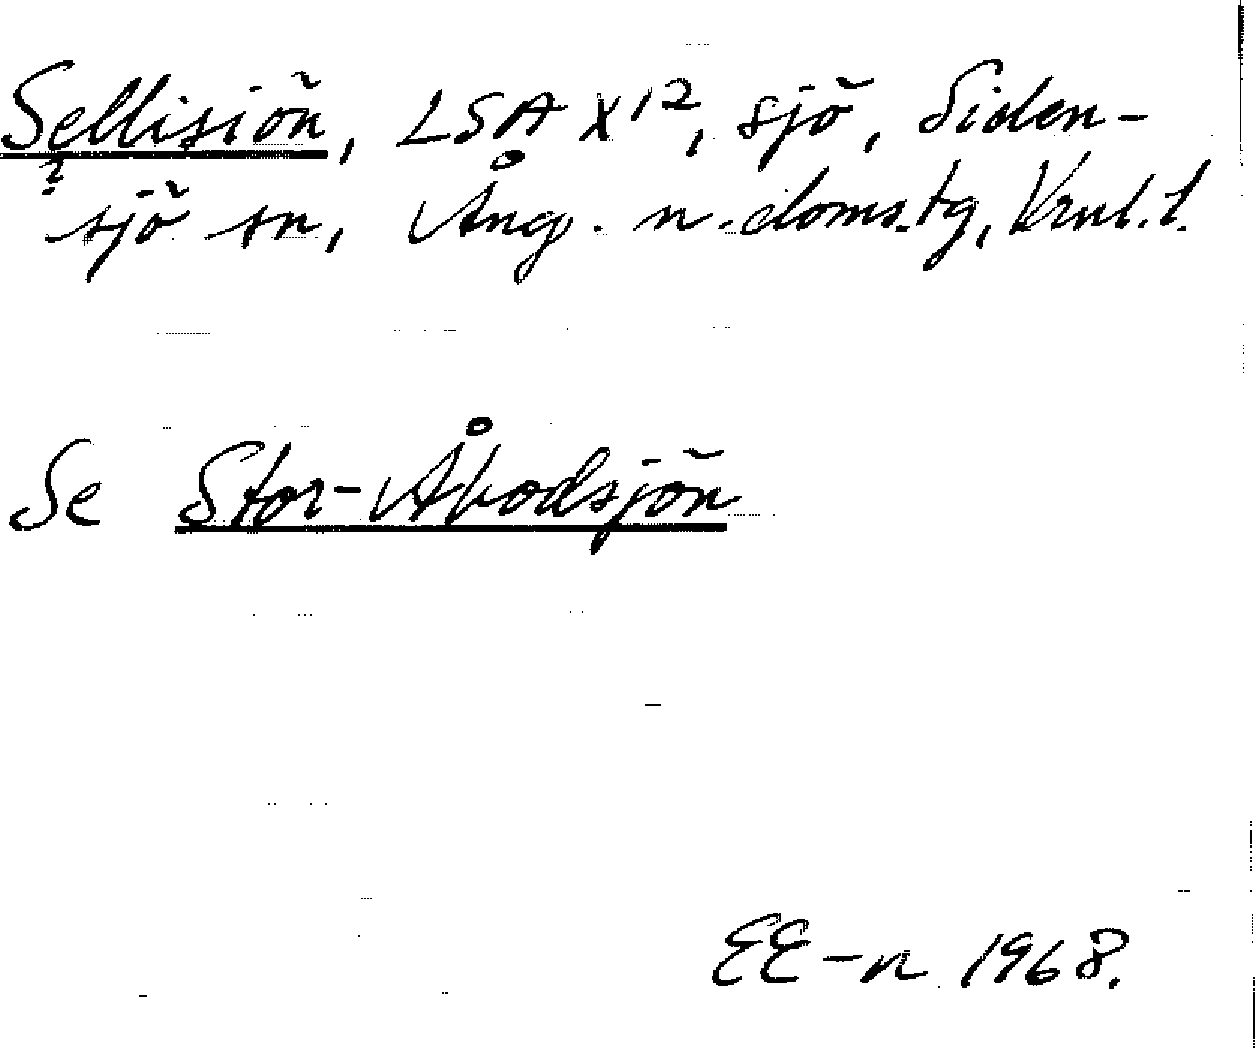 Sellisiön, LSA X 12, sjö, Siden-
?
sjö sn, Ång. n. doms.tg, Vrnl. l.
Se Stor-Åbodsjön
EE-n 1968.